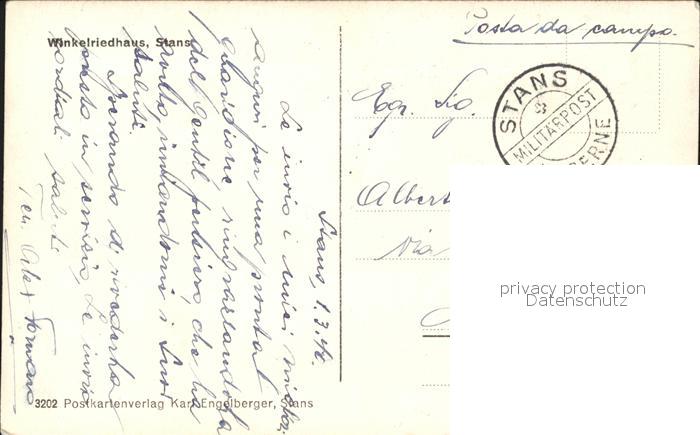 Winkelriedhaus, Stans
Posta da campo.
STANS
MILITÄRPOST
Egr. Sig.
Albert
via
Stans, 1.3.40.
Le invio i miei migliori
auguri per una pronta
guarigione, ringraziandola
del gentil pensiero, che ha
avuto inviandomi i suoi
saluti.
Sperando di rivederla
presto in servizio, Le invio
cordiali saluti
Ten.
3202 Postkartenverlag Karl Engelberger, Stans
privacy protection
Datenschutz